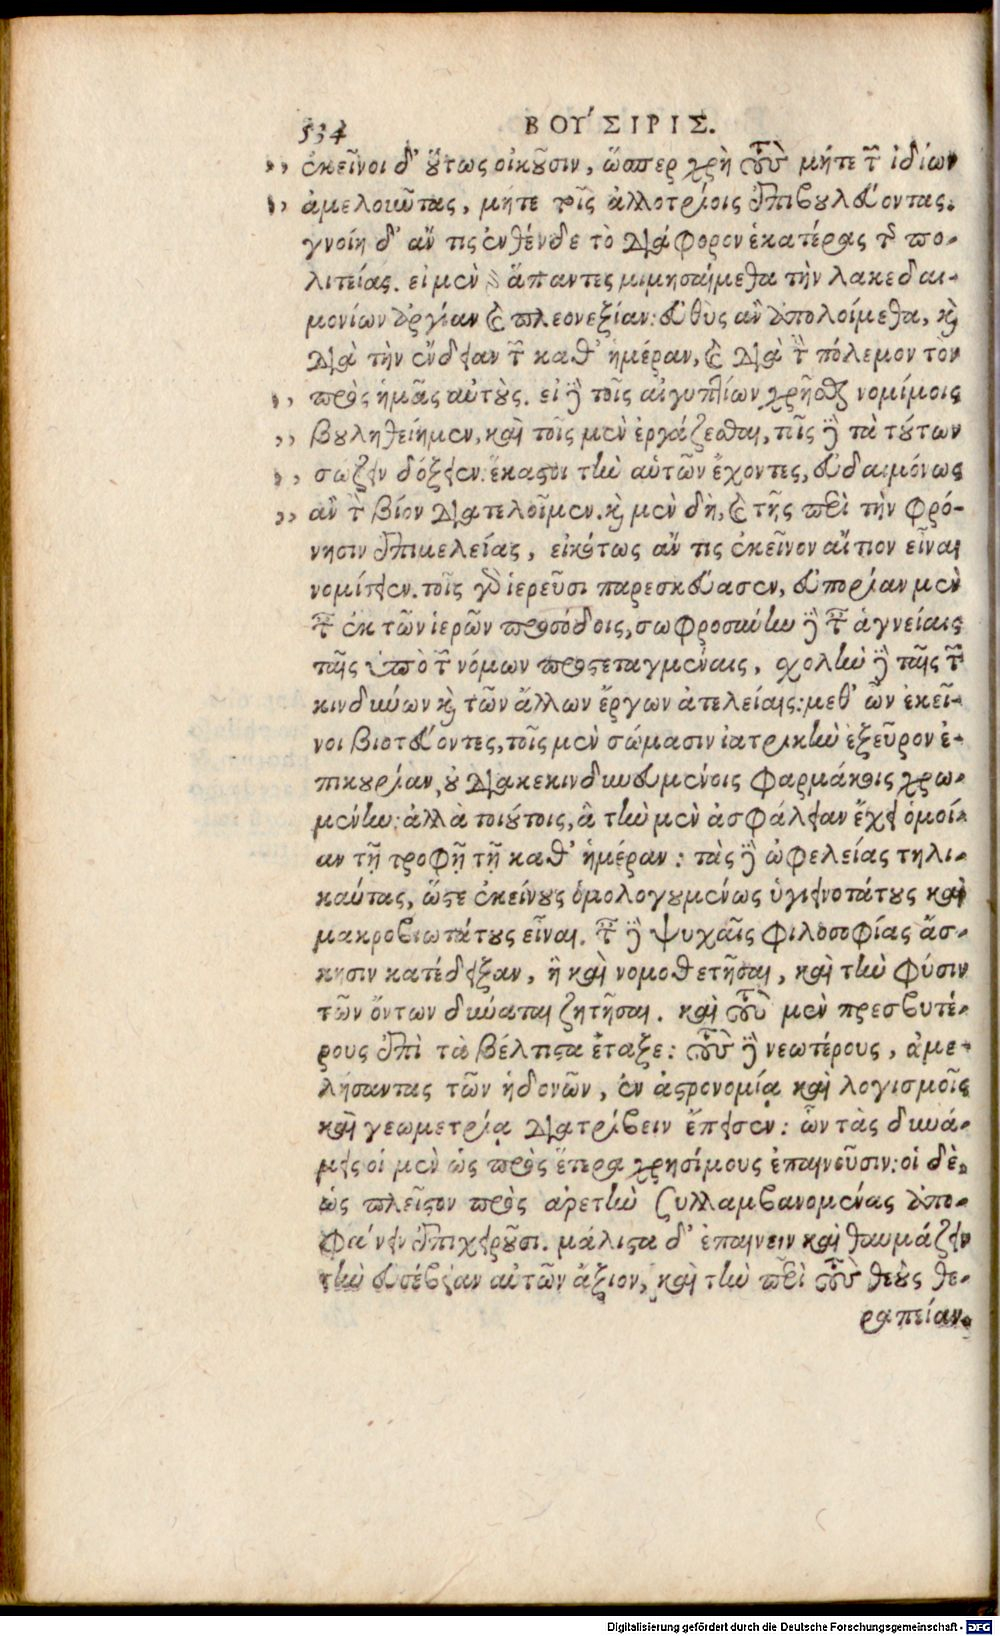 534 ΒΟΥ´ΣΙΡΙΣ.
,, ἐκεῖνοι δ' οὕτως οἰκοῦσιν, ὥσπερ χρὴ τοὺς μήτε τῶν ἰδίων
,, ἀμελοιῶτας, μήτε τοῖς ἀλλοτρίοις ἐπιβουλεύοντας.
γνοίη δ' ἄν τις ἐνθένδε τὸ διάφορον ἑκατέρας τῆς πο-
λιτείας. εἰ μὲν γὰρ ἅπαντες μιμησαίμεθα τὴν λακεδαι-
μονίων ἀργίαν καὶ πλεονεξίαν: εὐθὺς ἂν ἀπολοίμεθα, καὶ
διὰ τὴν ἔνδειαν τῶν καθ' ἡμέραν, καὶ διὰ τὸν πόλεμον τὸν
,, πρὸς ἡμᾶς αὐτούς. εἰ δὲ τοῖς αἰγυπτίων χρῆσθαι νομίμοις
,, βουληθείημεν, καὶ τοῖς μὲν ἐργάζεσθαι, τοῖς δὲ τὰ τούτων
,, σώζειν δόξειεν: ἕκαστοι τὴν αὑτῶν ἔχοντες, εὐδαιμόνως
,, ἂν τὸν βίον διατελοῖμεν. καὶ μὲν δὴ, καὶ τῆς περὶ τὴν φρό-
νησιν ἐπιμελείας, εἰκότως ἄν τις ἐκεῖνον αἴτιον εἶναι
νομίσειεν. τοῖς γὰρ ἱερεῦσι παρεσκεύασεν, εὐπορίαν μὲν
ταῖς ἐκ τῶν ἱερῶν προσόδοις, σωφροσύνην δὲ ταῖς ἁγνείαις
ταῖς ὑπὸ τῶν νόμων προςεταγμέναις, σχολὴν δὲ ταῖς τῶν
κινδύνων καὶ τῶν ἄλλων ἔργων ἀτελείαις: μεθ' ὧν ἐκεῖ-
νοι βιοτεύοντες, τοῖς μὲν σώμασιν ἰατρικὴν ἐξεῦρον ἐ-
πικουρίαν, οὐ διακεκινδυνευμένοις φαρμάκοις χρω-
μένην: ἀλλὰ τοιούτοις, ἃ τὴν μὲν ἀσφάλειαν ἔχει ὁμοί-
αν τῇ τροφῇ τῇ καθ' ἡμέραν: τὰς δὲ ὠφελείας τηλι-
καύτας, ὥστε ἐκείνους ὁμολογουμένως ὑγιεινοτάτους καὶ
μακροβιωτάτους εἶναι. ταῖς δὲ ψυχαῖς φιλοσοφίας ἄσ-
κησιν κατέδειξαν, ἣ καὶ νομοθετῆσαι, καὶ τὴν φύσιν
τῶν ὄντων δύναται ζητῆσαι. καὶ τοὺς μὲν πρεσβυτέ-
ρους ἐπὶ τὰ βέλτιστα ἔταξε: τοὺς δὲ νεωτέρους, ἀμε-
λήσαντας τῶν ἡδονῶν, ἐν ἀστρονομίᾳ καὶ λογισμοῖς
καὶ γεωμετρίᾳ διατρίβειν ἔπεισεν: ὧν τὰς δυνά-
μεις οἱ μὲν ὡς πρὸς ἕτερα χρησίμους ἐπαινοῦσιν: οἱ δὲ,
ὡς πλεῖστον πρὸς ἀρετὴν συλλαμβανομένας ἀπο-
φαίνειν ἐπιχειροῦσι. μάλιστα δ' ἐπαινεῖν καὶ θαυμάζειν
τὴν εὐσέβειαν αὐτῶν ἄξιον, καὶ τὴν περὶ τοὺς θεοὺς θε-
ραπείαν.
Digitalisierung gefördert durch die Deutsche Forschungsgemeinschaft - DFG